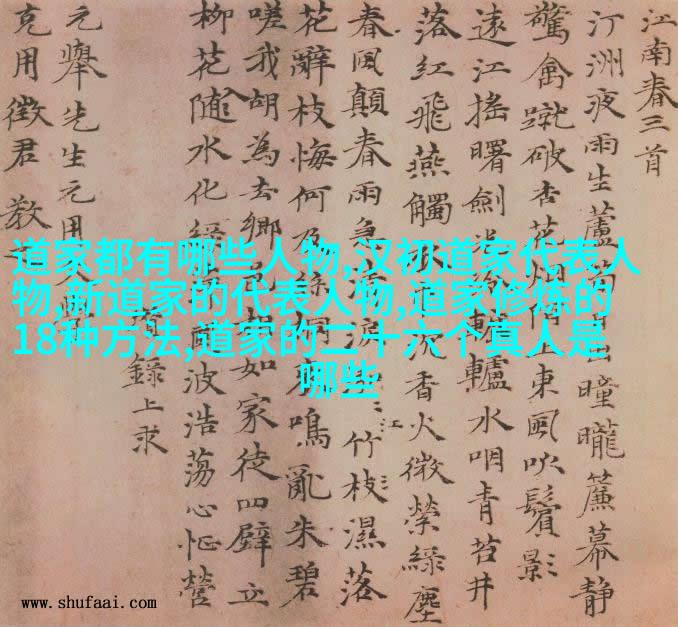 江南春三首
汀洲夜雨生蘆日曈曨簾幕静
驚禽蹴破杏花烟陌上東風吹鬢影
遠江搖曙劍轆轤水咽青苔井
落紅飛燕觸火香火微縈綠塵
春風顛春雨急淚江竹枝濕落
花辭枝悔何及絲桐鳴亂朱碧
嗟我胡為去鄉邑相如家徒四壁立
柳花隨水化綠波浩蕩心怔營
錄上求
元舉先生元用
克用徵君教
道家都有哪些人物,汉初道家代表人
物,新道家的代表人物,道家修炼的
18种方法,道家的二十六个真人是
哪些
www.shufaai.com